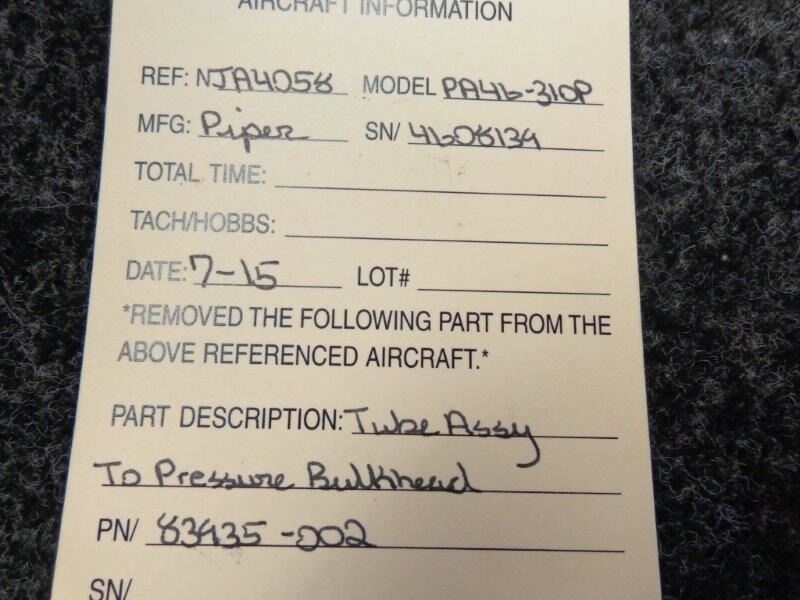 AIRCRAFT INFORMATION
REF: NJA4058 MODEL PA46-310P
MFG: Piper SN/ 4608134
TOTAL TIME:
TACH/HOBBS:
DATE: 7-15 LOT#
*REMOVED THE FOLLOWING PART FROM THE
ABOVE REFERENCED AIRCRAFT.*
PART DESCRIPTION: Tube Assy
To Pressure Bulkhead
PN/ 83935-002
SN/